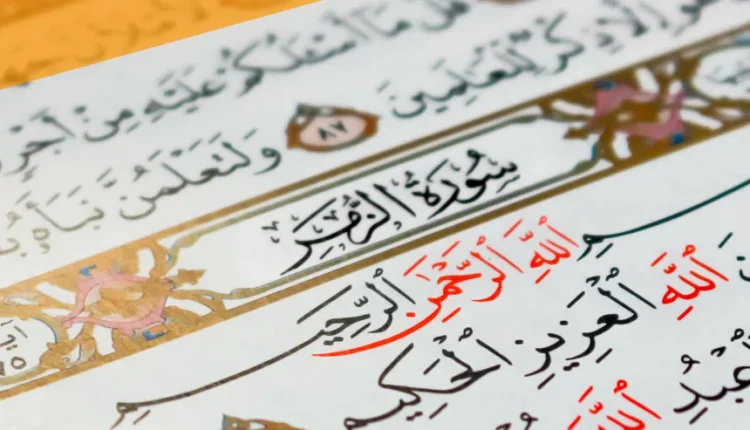 قُلْ مَا أَسْئَلُكُمْ عَلَيْهِ مِنْ أَجْرٍ
إِلَّا ذِكْرٌ لِلْعَالَمِينَ ٨٧ وَلَتَعْلَمُنَّ نَبَأَهُ
سُورَةُ الزُّمَرِ
اللَّهِ الرَّحْمٰنِ الرَّحِيمِ
اللَّهِ الْعَزِيزِ الْحَكِيمِ
اللَّهَ